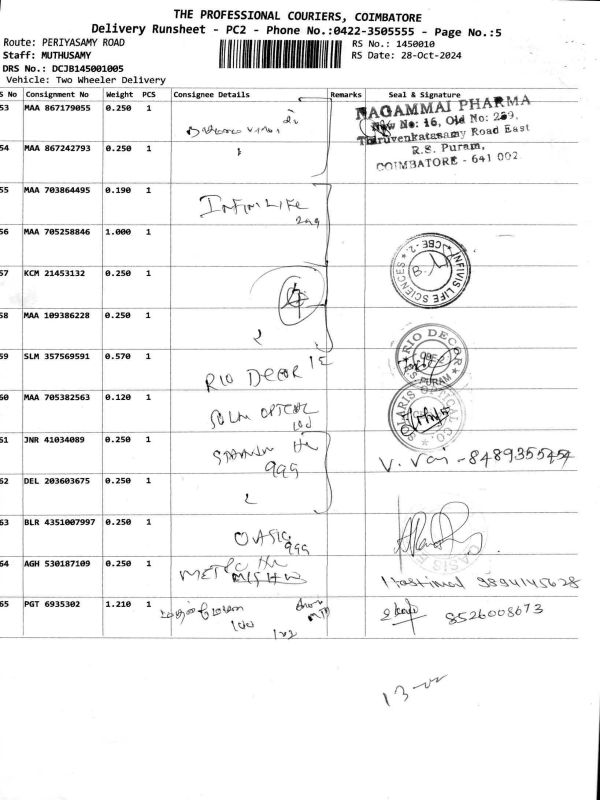 THE PROFESSIONAL COURIERS, COIMBATORE
Delivery Runsheet - PC2 - Phone No.:0422-3505555 - Page No.:5
Route: PERIYASAMY ROAD
RS No.: 1450010
Staff: MUTHUSAMY
RS Date: 28-Oct-2024
DRS No.: DCJB145001005
Vehicle: Two Wheeler Delivery
S No Consignment No Weight PCS Consignee Details Remarks Seal & Signature
53 MAA 867179055 0.250 1
NAGAMMAI PHARMA
New No: 16, Old No: 259,
Thiruvenkatasamy Road East
R.S. Puram,
COIMBATORE - 641 002
54 MAA 867242793 0.250 1
55 MAA 703864495 0.190 1 INFINI LIFE
299
56 MAA 705258846 1.000 1
INFIVIS LIFE SCIENCES CBE-2
57 KCM 21453132 0.250 1
58 MAA 109386228 0.250 1
59 SLM 357569591 0.570 1 RIO DECOR
RIO DECOR
R.S. PURAM
60 MAA 705382563 0.120 1
SOLARIS OPTICAL CO.
61 JNR 41034089 0.250 1
999
V. Vai - 8489355454
62 DEL 203603675 0.250 1
63 BLR 4351007997 0.250 1 OASIS
999
OASIS
64 AGH 530187109 0.250 1 METRO
Hastimal 9894145628
65 PGT 6935302 1.210 1
100
102
8526008673
13-